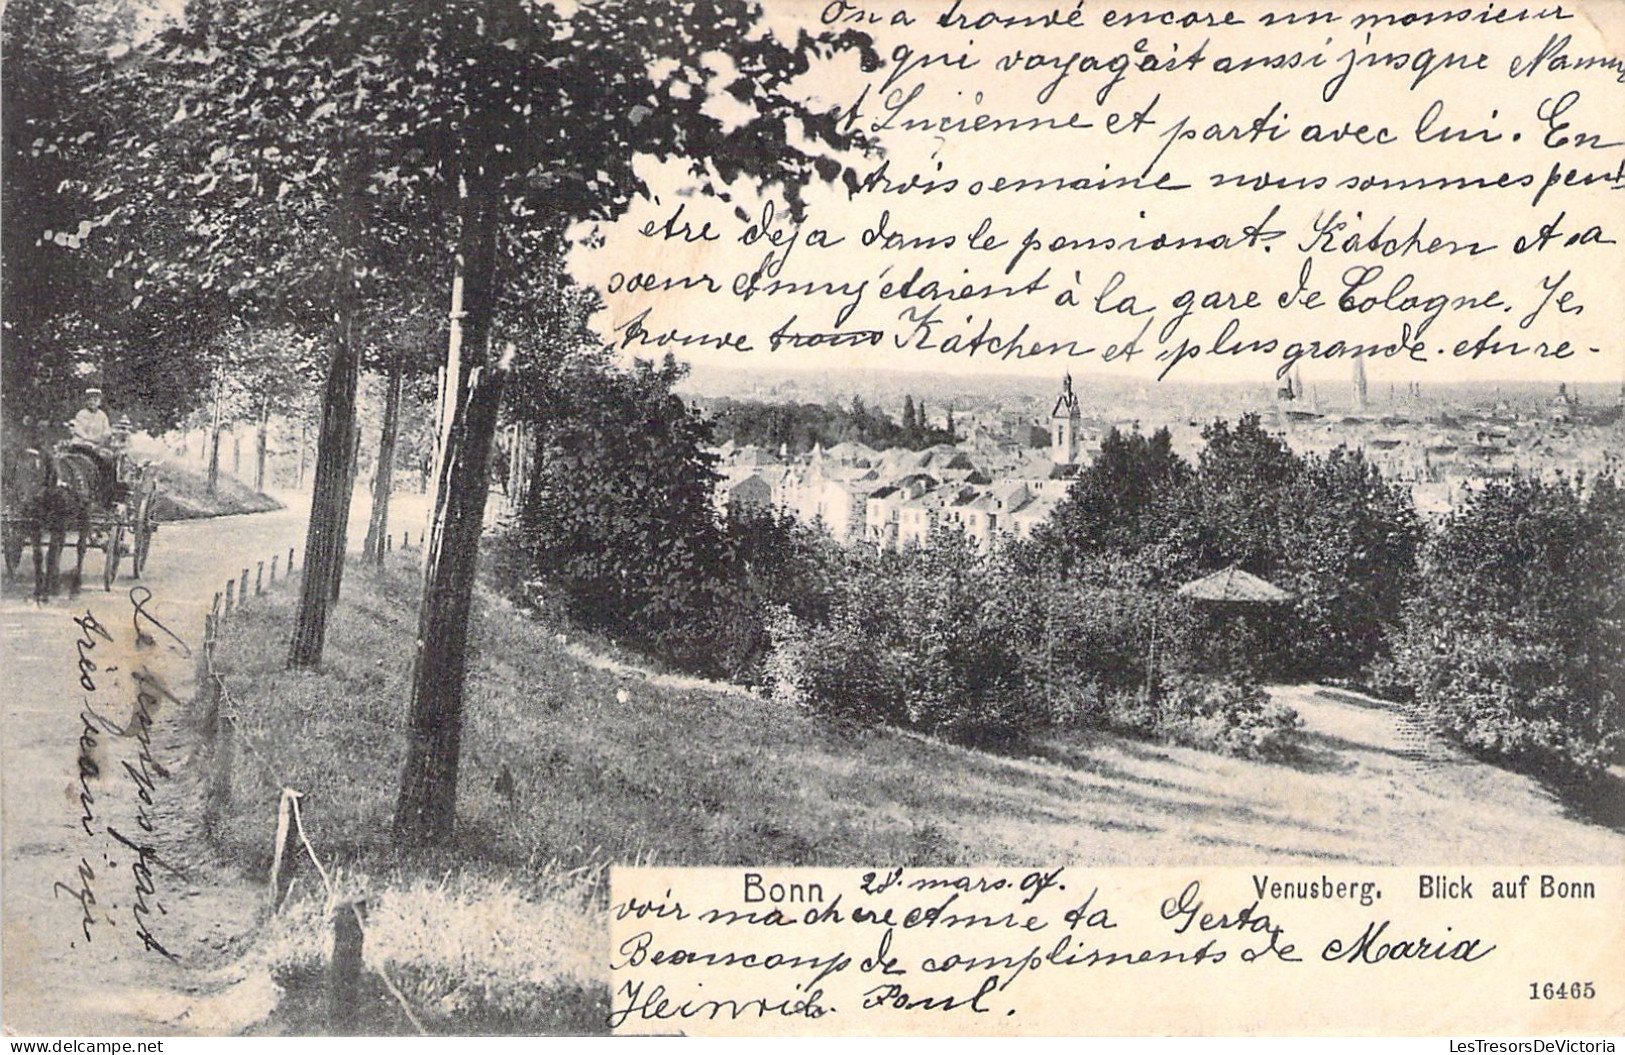 On a trouvé encore un monsieur
qui voyageait aussi jusque Namur
et Lucienne et parti avec lui. En
trois semaine nous sommes peut
être deja dans le pensionat. Kätchen et sa
soeur Anny étaient à la gare de Cologne. Je
trouve Kätchen et plus grande. etu re-
Bonn 28. mars. 07. Venusberg. Blick auf Bonn
voir ma chere Amie ta Gerta.
Beaucoup de compliments de Maria
Heinrich. Paul.
16465
Le temps fait
très beau ici.
www.delcampe.net
LesTresorsDeVictoria